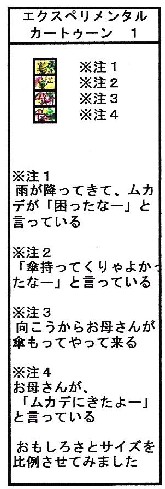 エクスペリメンタル
カートゥーン　1
※注1
※注2
※注3
※注4
※注1
雨が降ってきて、ムカ
デが「困ったなー」と
言っている
※注2
「傘持ってくりゃよかっ
たなー」と言っている
※注3
向こうからお母さんが
傘もってやって来る
※注4
お母さんが、
「ムカデにきたよー」
と言っている
おもしろさとサイズを
比例させてみました